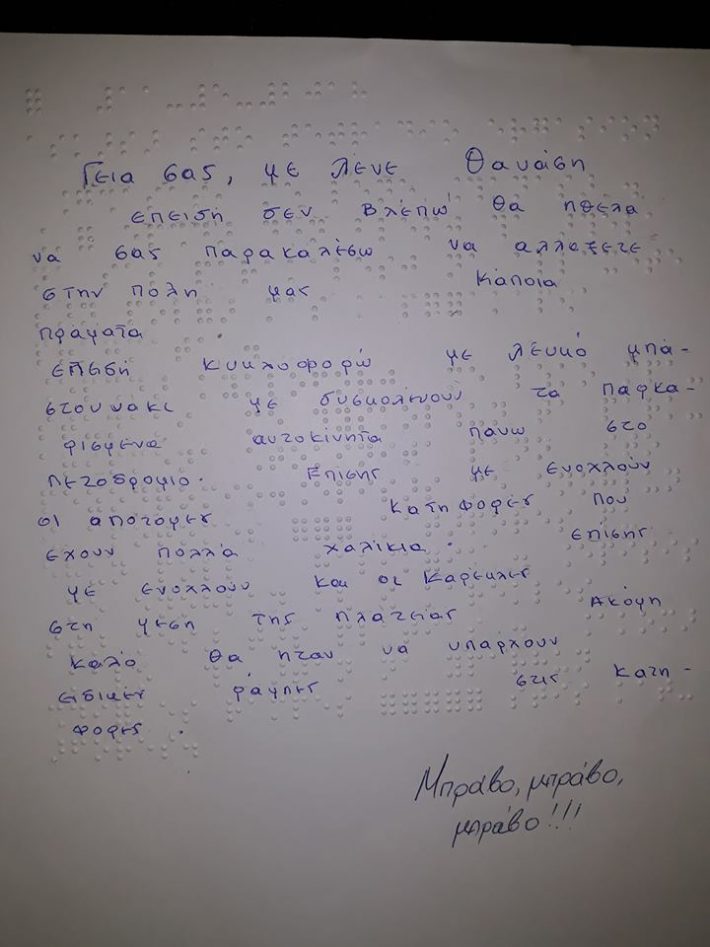 Γεια σας, με λενε Θανάση
επειδή δεν βλέπω θα ηθελα
να σας παρακαλέσω να αλλαξετε
στην πόλη μας κάποια
πράματα
επεδή κυκλοφορώ με λευκό μπα-
στουνακι με δυσκολέυουν τα παρκα-
ρισμενα αυτοκίνητα πάνω στο
πεζοδρομιο. Επισης με ενοχλούν
οι αποτομες κατηφορες που
εχουν πολλά χαλίκια. επίσης
με ενοχλούν και οι καρεκλες
στη μεση της πλατειας Ακόμη
καλο θα ηταν να υπαρχουν
ειδικες ράμπες στις κατη-
φορες.
Μπράβο, μπράβο,
μπράβο!!!